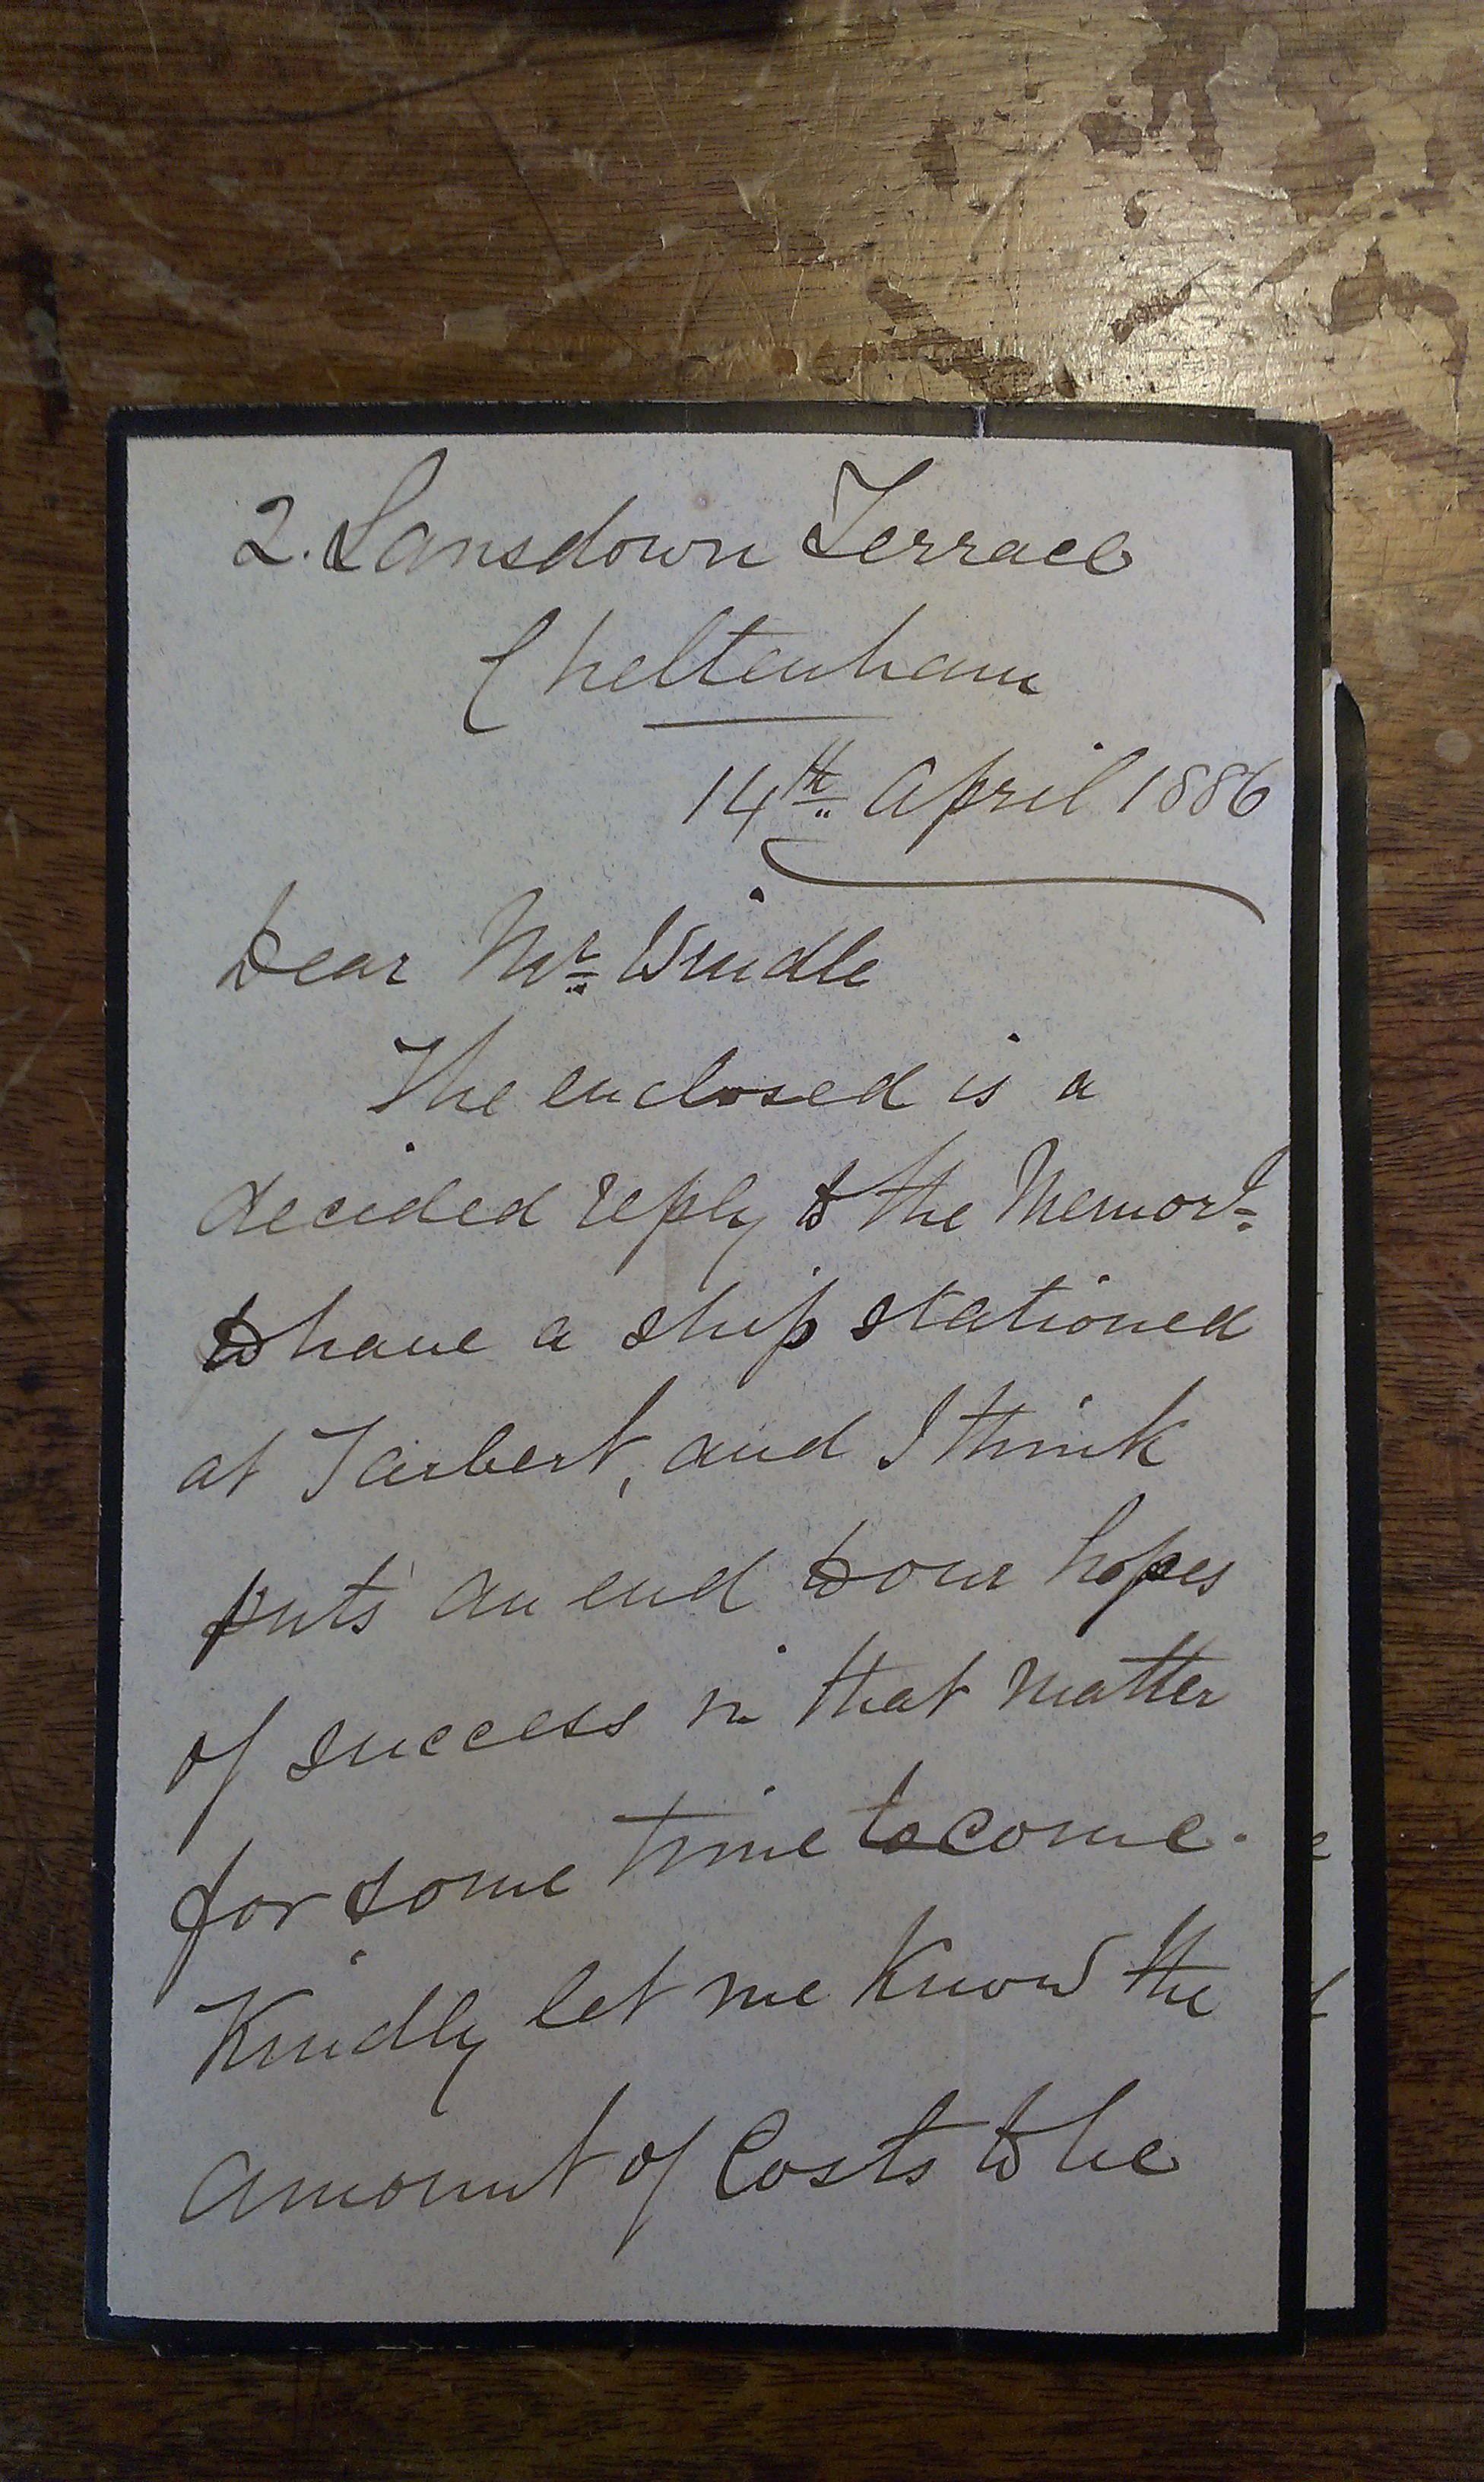 2. Lansdown Terrace
Cheltenham
14th April 1886
Dear Mr Windle
The enclosed is a
decided reply to the Memorl
to have a ship stationed
at Tarbert, and I think
puts an end to our hopes
of success in that matter
for some time to come.
Kindly let me know the
amount of Costs to be